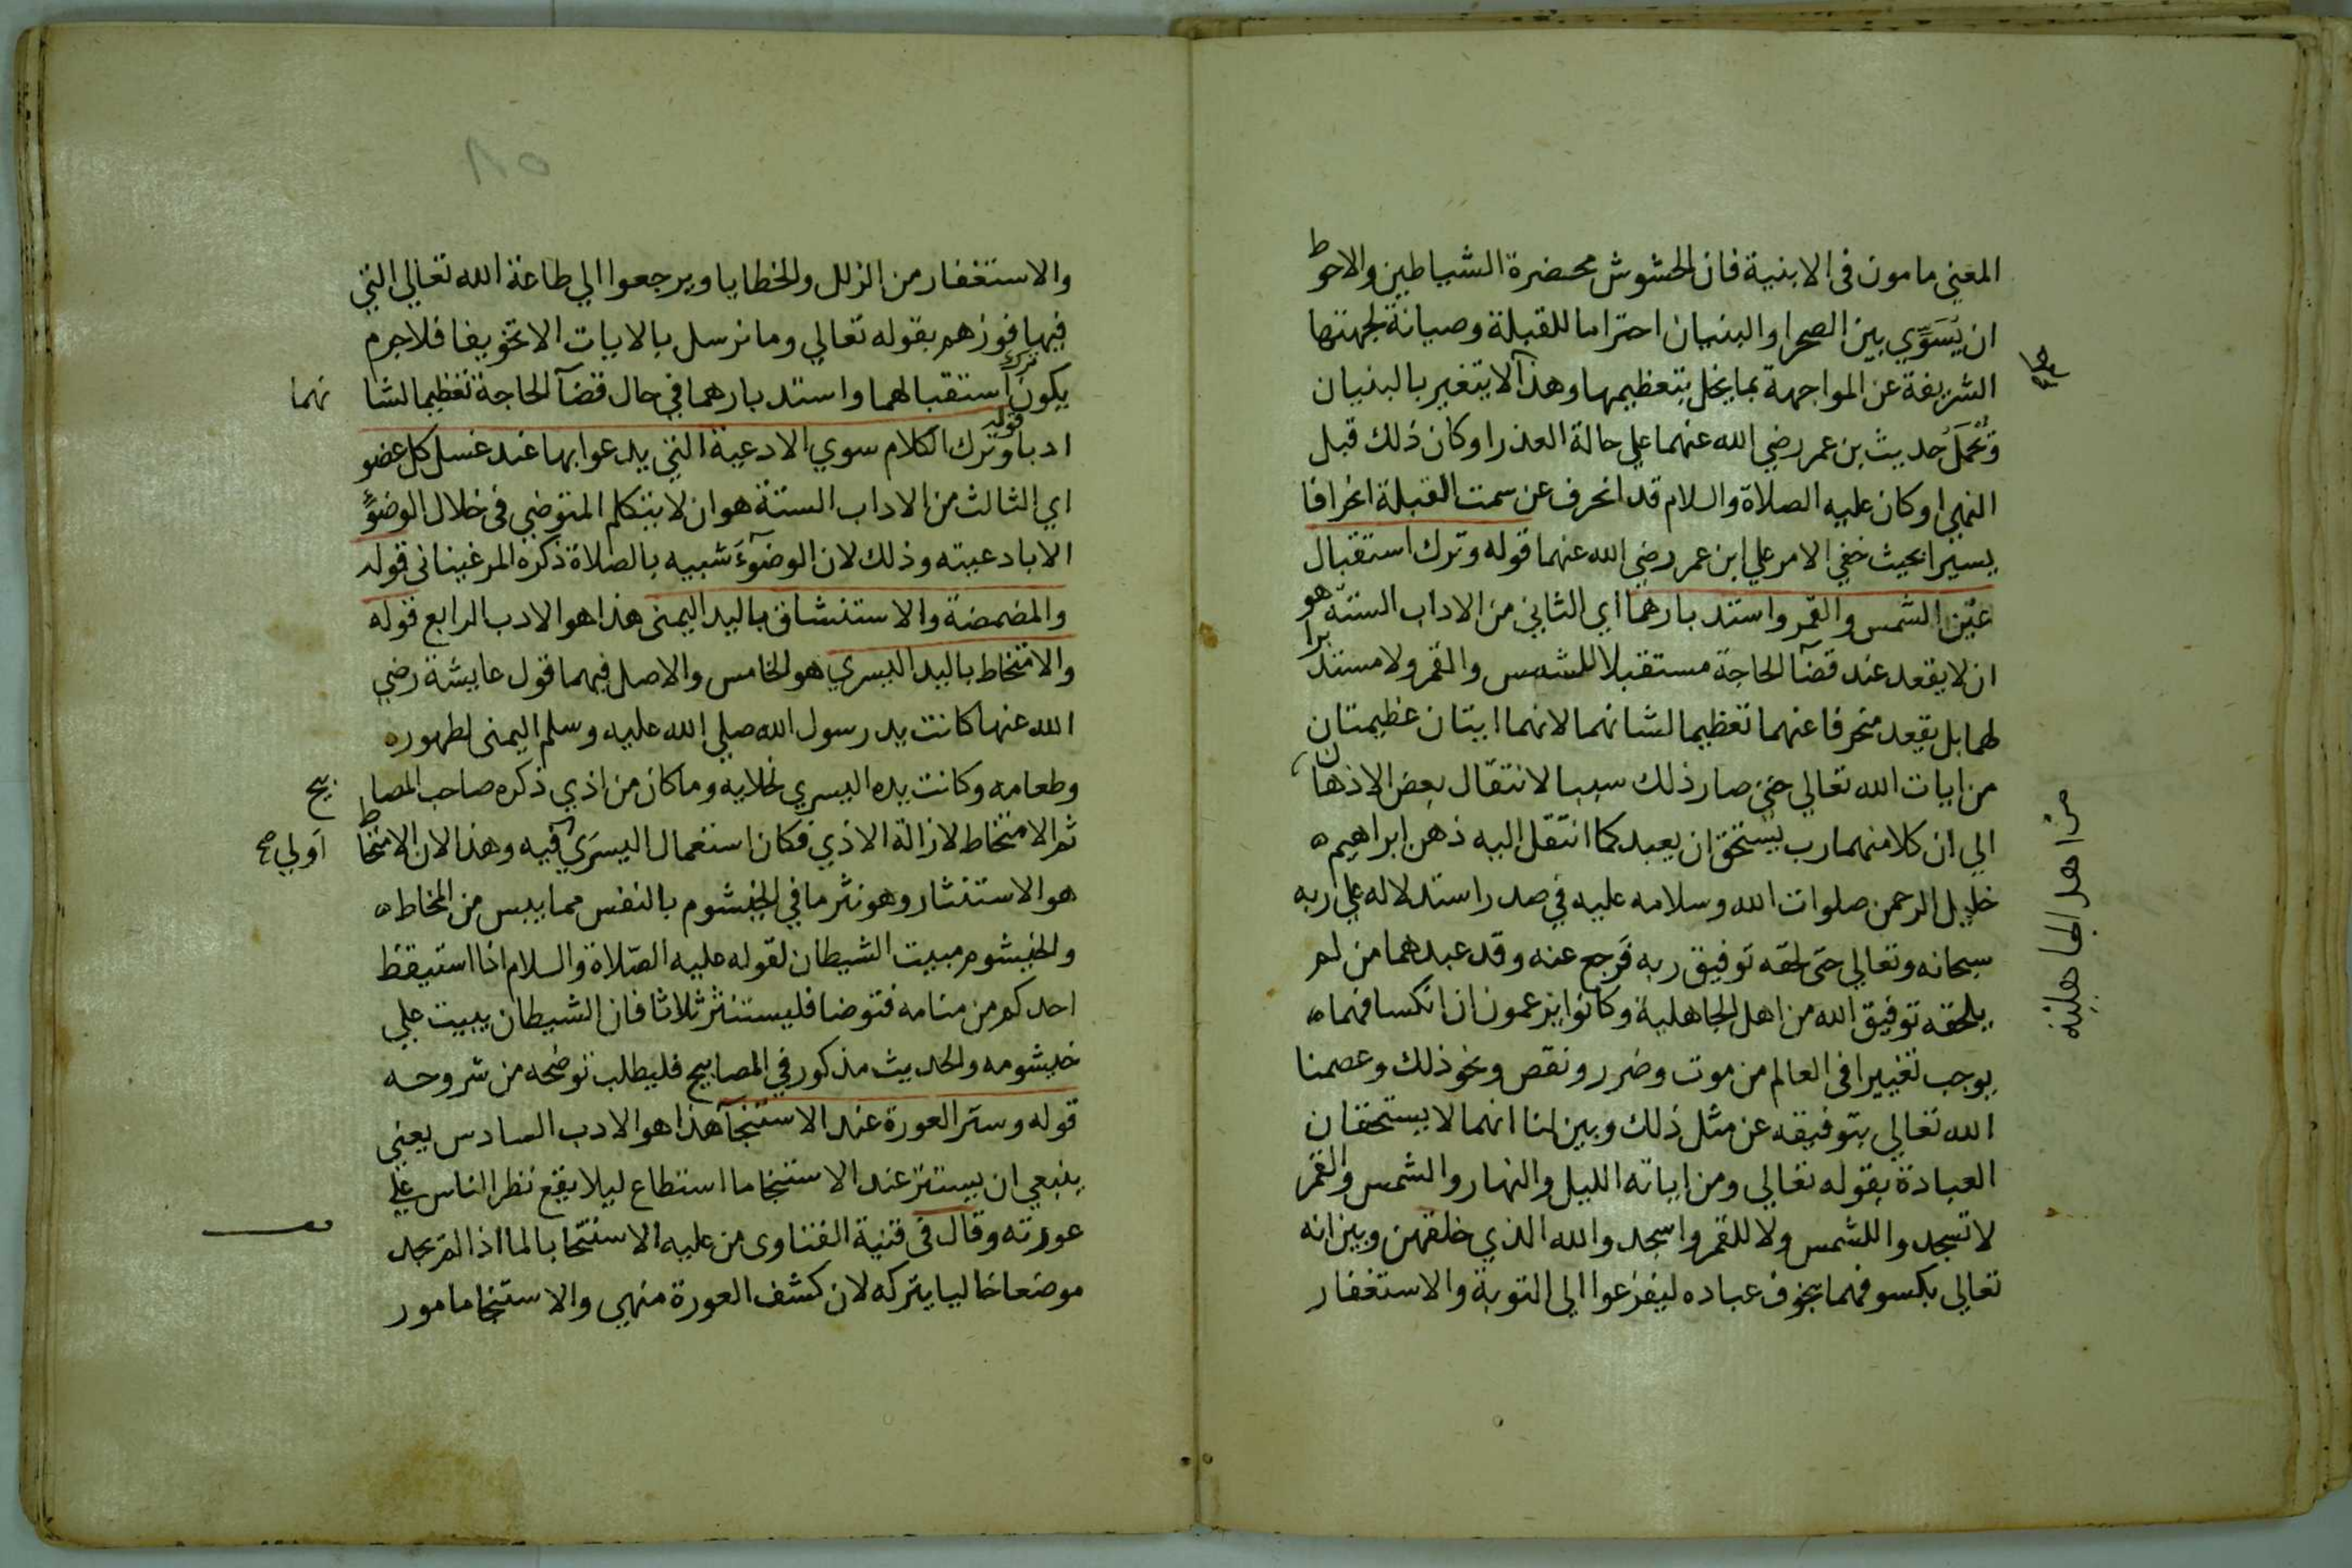 المعني مامون فى الابنية فان الحشوش محضرة الشياطين والاحوط
ان يُسَوِّي بين الصحرا والبنيان احتراما للقبلة وصيانة لجهتها
الشريفة عن المواجهة بما يخل بتعظيمها وهذا لا يتغير بالبنيان
وتُحْمَلُ حديث بن عمر رضي الله عنهما علي حالة العذر او كان ذلك قبل
النهي او كان عليه الصلاة والسلام قد انحرف عن سمت القبلة انحرافا
يسيرا بحيث خفي الامر علي ابن عمر رضي الله عنهما قوله وترك استقبال
عين الشمس والقمر واستدبارهما اي الثاني من الاداب الستة هو
ان لا يقعد عند قضآ الحاجة مستقبلا للشمس والقمر ولا مستدبرا
لهما بل يقعد منحرفا عنهما تعظيما لشانهما لانهما ايتان عظيمتان
من ايات الله تعالي حتى صار ذلك سببا لانتقال بعض الاذهان
الي ان كلا منهما رب يستحق ان يعبد كما انتقل اليه ذهن ابراهيم
خليل الرحمن صلوات الله وسلامه عليه في صدر استدلاله علي ربه
سبحانه وتعالي حتى لحقه توفيق ربه فرجع عنه وقد عبدهما من لم
يلحقه توفيق الله من اهل الجاهلية وكانوا يزعمون ان انكسافهما
يوجب تغييرا فى العالم من موت وضرر ونقص ونحو ذلك وعصمنا
الله تعالي بتوفيقه عن مثل ذلك وبين لنا انهما لا يستحقان
العبادة بقوله تعالي ومن اياته الليل والنهار والشمس والقمر
لا تسجدوا للشمس ولا للقمر واسجدوا لله الذي خلقهن وبين انه
تعالي بكسوفهما يخوف عباده ليفزعوا الي التوبة والاستغفار
من اهل الجاهلية
٨٥
والاستغفار من الزلل والخطايا ويرجعوا الي طاعة الله تعالي التي
فيها فوزهم بقوله تعالي وما نرسل بالايات الا تخويفا فلا جرم
يكون ترك استقبالهما واستدبارهما في حال قضآ الحاجة تعظيما لشا نهما
ادبا قوله وترك الكلام سوي الادعية التي يدعوا بها عند غسل كل عضو
اي الثالث من الاداب الستة هو ان لا يتكلم المتوضي فى خلال الوضوء
الا بادعيته وذلك لان الوضوءَ شبيه بالصلاة ذكره المرغيناني قوله
والمضمضة والاستنشاق باليد اليمنى هذا هو الادب الرابع قوله
والامتخاط باليد اليسري هو الخامس والاصل فيهما قول عايشة رضي
الله عنها كانت يد رسول الله صلي الله عليه وسلم اليمنى لطهوره
وطعامه وكانت يده اليسري لخلايه وما كان من اذي ذكره صاحب المصا بيح
ثم الامتخاط لازالة الاذي فكان استعمال اليسرَي فيه اَولي صح وهذا لان الامتخاط
هو الاستنثار وهو نثر ما في الخيشوم بالنفس مما يبس من المخاط
والخيشوم مبيت الشيطان لقوله عليه الصّلاة والسلام اذا استيقظ
احدكم من منامه فتوضا فليستنثر ثلاثا فان الشيطان يبيت علي
خيشومه والحديث مذكور في المصابيح فليطلب توضحه من شروحه
قوله وستر العورة عند الاستنجآ هذا هو الادب السادس يعني
ينبغي ان يستتر عند الاستنجا ما استطاع ليلا يقع نظر الناس علي
عورته وقال فى قنية الفتاوى من عليه الاستنجا بالما اذا لم يجد
موضعا خاليا يتركه لان كشف العورة منهي والاستنجا مامور